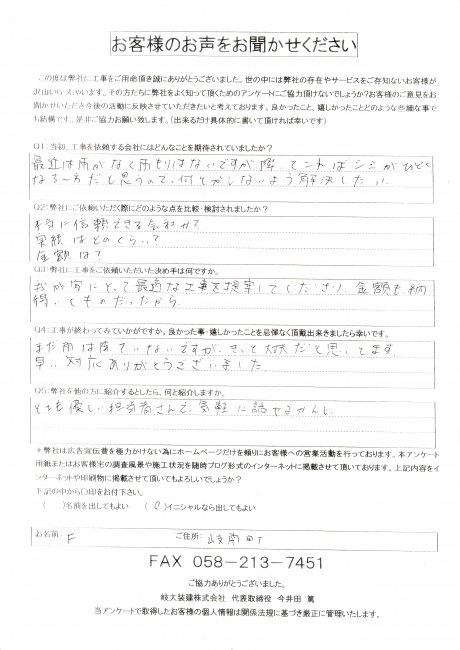 お客様のお声をお聞かせください
この度は弊社に工事をご用命頂き誠にありがとうございました。世の中には弊社の存在やサービスをご存知ないお客様が
沢山いらっしゃいます。その方たちに弊社をよく知って頂くためのアンケートにご協力頂けないでしょうか?お客様のご意見をお
聞かせいただき今後の活動に反映させていただきたいと考えております。良かったこと、嬉しかったことどのような些細な事で
も結構です。是非ご協力お願い致します。(出来るだけ具体的に書いて頂ければ幸いです)
Q1:当初、工事を依頼する会社にはどんなことを期待されていましたか?
最近は雨がなく雨もりはないですが、降ってこればシミがひどく
なる一方だと思うので、何とかしないよう解決したい。
Q2:弊社にご依頼いただく際にどのような点を比較・検討されましたか?
本当に信頼できる会社か?
実績はどのくらい?
金額は?
Q3:弊社に工事をご依頼いただいた決め手は何ですか。
我が家にとって最適な工事を提案してくださり、金額も納
得いくものだったから
Q4:工事が終わってみていかがですか。良かった事・嬉しかったことを忌憚なく頂戴出来きましたら幸いです。
まだ雨は降っていないですが、きっと大丈夫だと思ってます。
早い対応ありがとうございました。
Q5:弊社を他の方に紹介するとしたら、何と紹介しますか。
とても優しい担当者さんで、気軽に話せるかんじ
*弊社は広告宣伝費を極力かけない為にホームページだけを頼りにお客様への営業活動を行っております。本アンケート
用紙またはお客様宅の調査風景や施工状況を随時ブログ形式のインターネットに掲載させて頂いております。上記内容をイ
ンターネットや印刷物に掲載させて頂いてもよろしいでしょうか?
下記の中から○印をお付下さい。
( )名前を出してもよい (○)イニシャルなら出してもよい
お名前: F ご住所: 岐南町
FAX 058-213-7451
ご協力ありがとうございました。
岐大装建株式会社 代表取締役 今井田 篤
当アンケートで取得したお客様の個人情報は関係法規に基づき厳正に管理いたします。